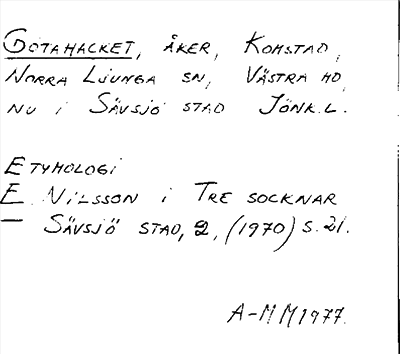 GÖTAHACKET, ÅKER, KOMSTAD,
NORRA LJUNGA SN, VÄSTRA HD,
NU I SÄVSJÖ STAD JÖNK.L.
ETYMOLOGI
E NILSSON I TRE SOCKNAR
– SÄVSJÖ STAD, 2, (1970) S. 21.
A-MM 1977.